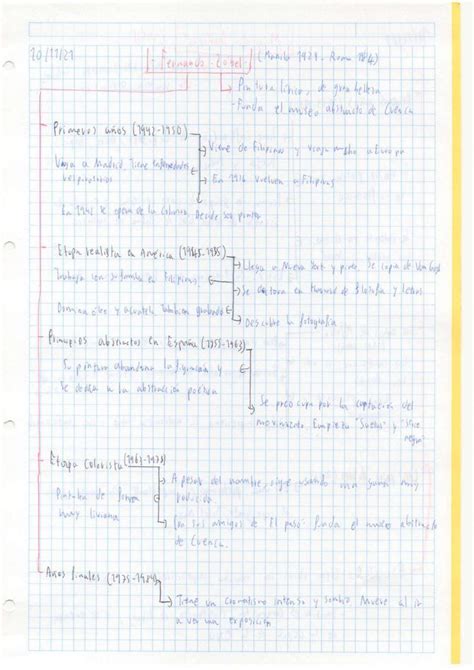 10/11/21
- Fernando Zóbel (Manila 1924 - Roma 1984)
→ Pintura lírica, de gran belleza
- Funda el museo abstracto de Cuenca
- Primeros años (1942-1950)
→ Viene de Filipinas y viaja mucho a Europa
Viaja a Madrid, tiene enfermedades
respiratorias
→ En 1936 vuelven a Filipinas
En 1942 se opera de la columna. Decide ser pintor.
- Etapa realista en América (1945-1955)
→ Llega a Nueva York y pinta. Se copa de Van Gogh
Trabaja con su familia en Filipinas
→ Se doctora en Harvard de filosofía y letras
Domina óleo y acuarela. También grabado
→ Descubre la fotografía
- Principios abstractos en España (1955-1963)
Su pintura abandona la figuración y
se dedica a la abstracción poética
→ Se preocupa por la captación del
movimiento. Empieza "Saetas" y "serie
negra"
- Etapa colorista (1963-1975)
→ A pesar del nombre, sigue usando una gama muy
reducida
Pintaba de forma
muy liviana
→ Con sus amigos de "El paso" funda el museo abstracto
de Cuenca.
- Años finales (1975-1984)
→ Tiene un cromatismo intenso y sombrío. Muere al ir
a ver una exposición